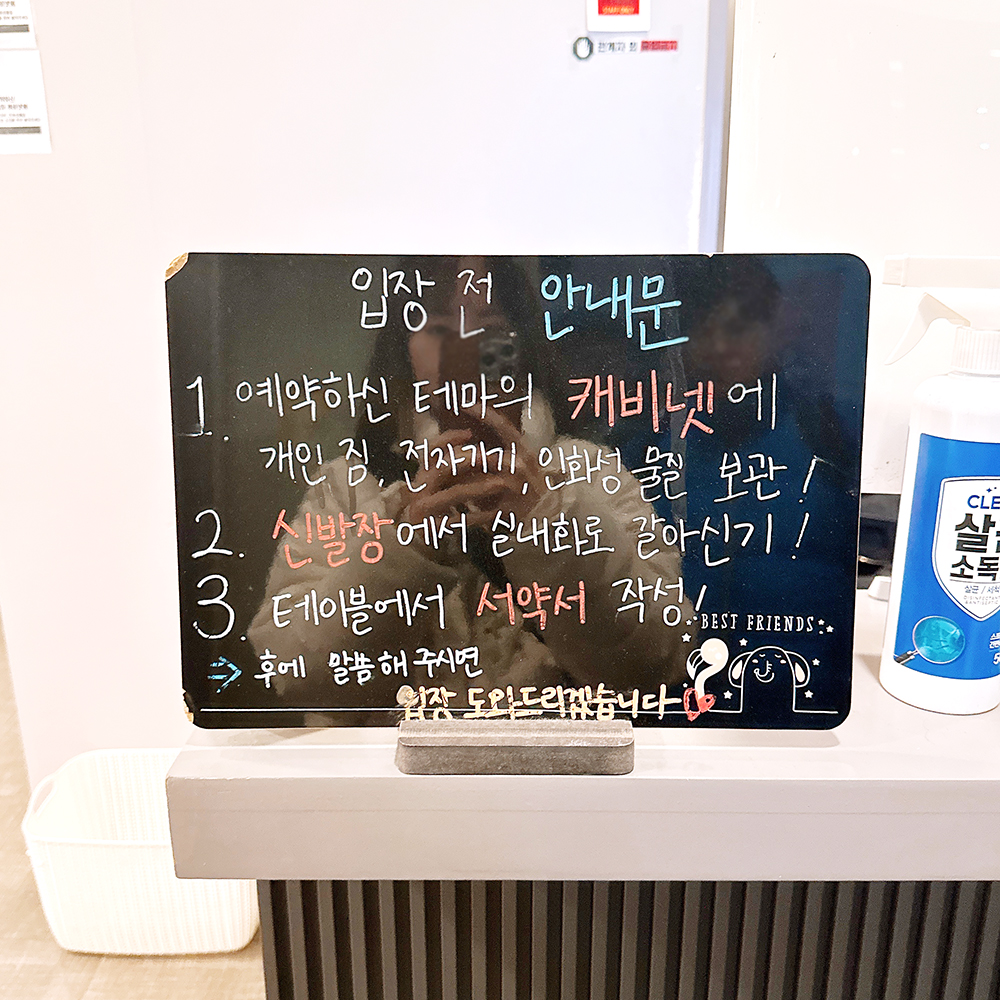 관계자 외 출입금지
입장 전 안내문
1. 예약하신 테마의 캐비넷에
개인 짐, 전자기기, 인화성 물질 보관!
2. 신발장에서 실내화로 갈아신기!
3. 테이블에서 서약서 작성!
BEST FRIENDS
→ 후에 말씀해 주시면
입장 도와드리겠습니다
CLE
살균
소독